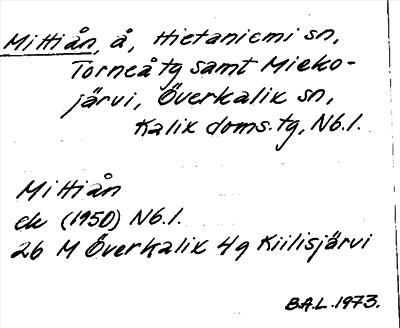 Mittiån, å, Hietaniemi sn,
Torneå tg samt Mieko-
järvi, Överkalix sn,
Kalix doms.tg, Nb.l.
Mittiån
ek (1950) Nb.l.
26 M Överkalix 49 Kiilisjärvi
B.A.L. 1973.